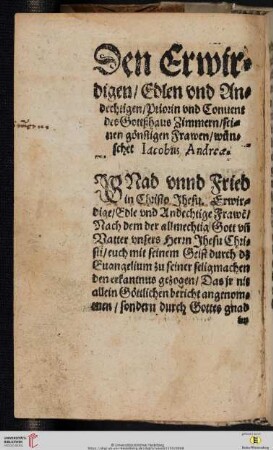 Den Erwir-
digen / Edlen vnd An-
dechtigen / Priorin vnd Conuent
des Gottßhaus Zimmern / sei-
nen gönstigen Frawen / wün-
schet Iacobus Andreæ.
GNad vnnd Fried
in Christo Jhesu. Erwir-
dige / Edle vnd Andechtige Frawẽ /
Nach dem der allmechtig / Gott vñ
Vatter vnsers Herrn Jhesu Chri-
sti / euch mit seinem Geist durch dz
Euangelium zu seiner seligmachen
den erkantnus gezogen / Das jr nit
allein Göttlichen bericht angenom-
men / sondern durch Gottes gnad